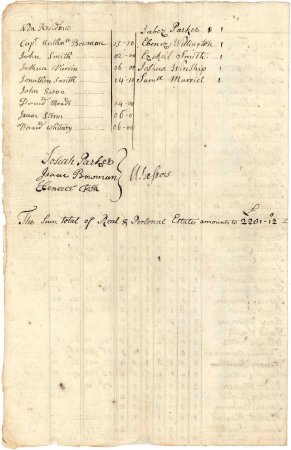 Non Residents
Capt Nathll Bowman 13-10
John Smith 02-00
Joshua 06-00
Jonathan Smith 04-10
John Swan
David 04-00
Isaac 06-00
David Whitney 06-00
Jabez Parker 1
Ebenezr Wellington 1
Ezekiel Smith 1
Joshua Winship 1
Saml 1
Josiah Parker
Isaac Bowman
Ebenezer
Assessors
The Sum total of Real & Personal Estate amounts to £ 2201-12